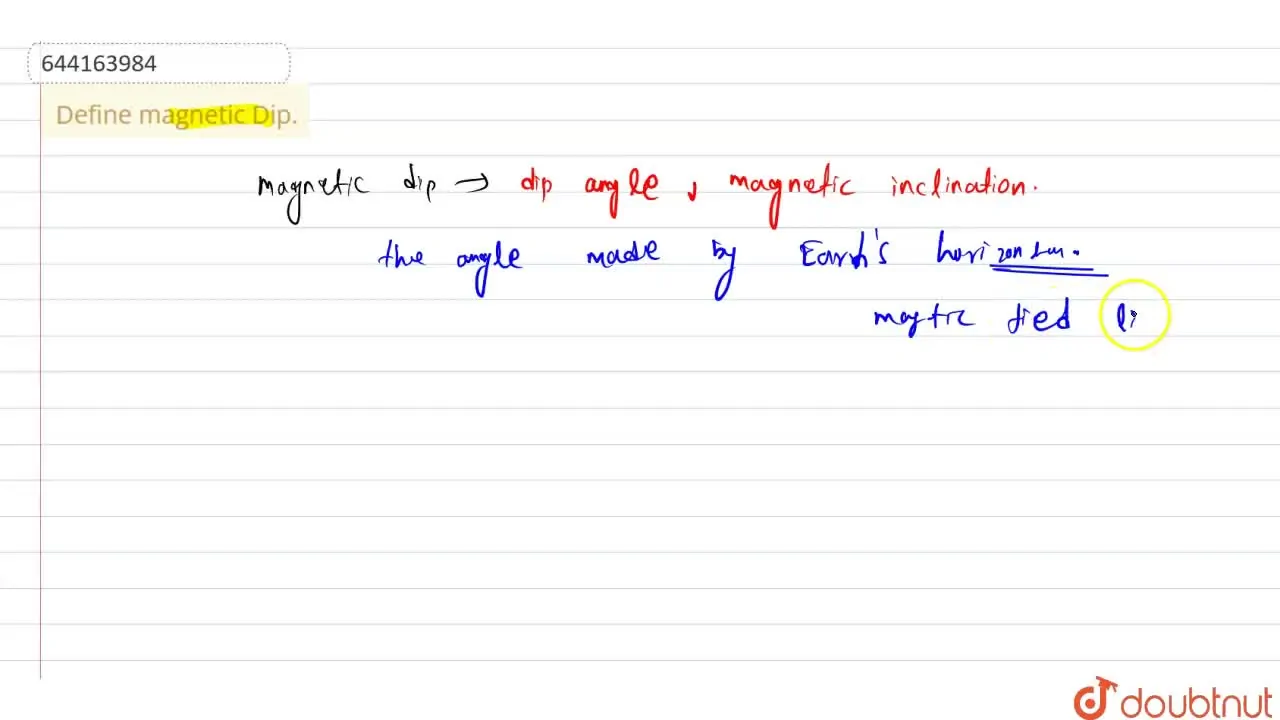 644163984
Define magnetic Dip.
magnetic dip → dip angle, magnetic inclination.
the angle made by Earth's
doubtnut